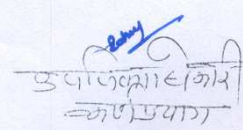 उपजिलाधिकारी
कर्णप्रयाग